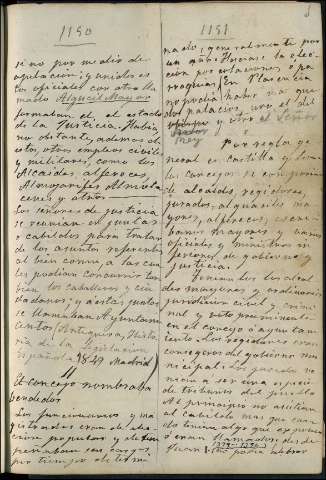 1190
si no por medio de
apelacion; y unidos es
tos oficiales con otro lla
mado Alguacil Mayor
formaban el estado
de la Justicia. Habia,
no obstante, ademas de
estos, otros empleos civiles
y militares, como los
Alcaides, alfereces,
Almojarifes Almota
cenes y otros.
Los señores de justicia
se reunian en juntas
o cabildos para tratar
de los asuntos referentes
al bien comun, a las cua
les podian concurrir tam
bien los caballeros y ciu
dadanos; y a estas juntas
se llamaban Ayuntami
entos. Antequera, Histo
ria de la Legislacion
Española 1849 Madrid)
11
El concejo nombraba
vendedor
Los funcionarios y ma
gistrados eran de elec
cion popular y desem
peñaban sus cargos
por tiempo determi
1191
nado; generalmente por
un año. Hacíase la elec
cion por colaciones ó pa
rroquias. En Plasencia
no podia haber mas que
dos palacios, uno el del
Obispo y otro el Señor
Rey
Por regla ge
neral en Castilla y Leon
los concejos se componian
de alcaldes, regidores,
jurados, alguaciles ma
yores, alfereces, escri
banos mayores y varios
oficiales y ministros in
feriores de gobierno y
justicia.
Tenian los alcal
des mayores y ordinarios
jurisdiccion civil y crimi
nal y voto preeminente
en el concejo ó ayunta
miento. Los regidores eran
consegeros del gobierno mu
nicipal. Los jurados ve
nian a ser una especie
de tribunos del pueblo
Al principio no asistian
al cabildo mas que cuan
do tenian algo que exponer
ó eran llamados; desde
Juan 1º 1379-1390 podia haber